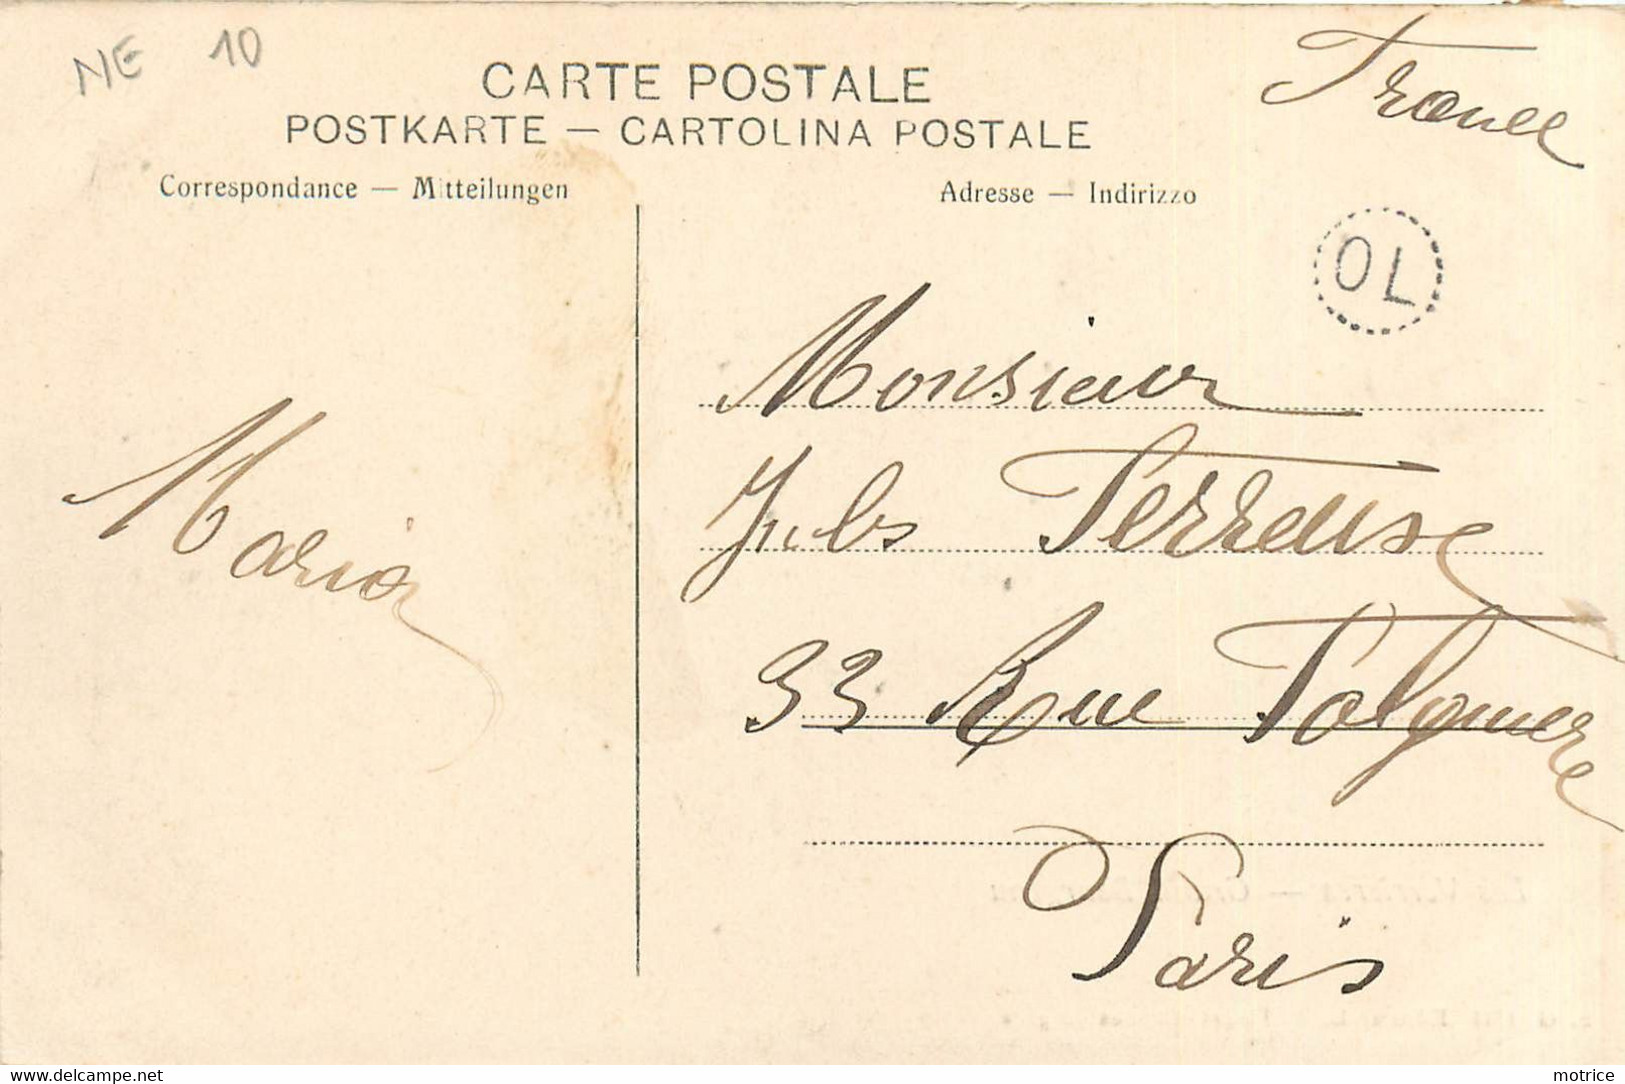 NE 10
France
CARTE POSTALE
POSTKARTE — CARTOLINA POSTALE
Correspondance — Mitteilungen
Adresse — Indirizzo
OL
Monsieur
Jules Perreuse
33 Rue
Paris
Maria
www.delcampe.net
motrice